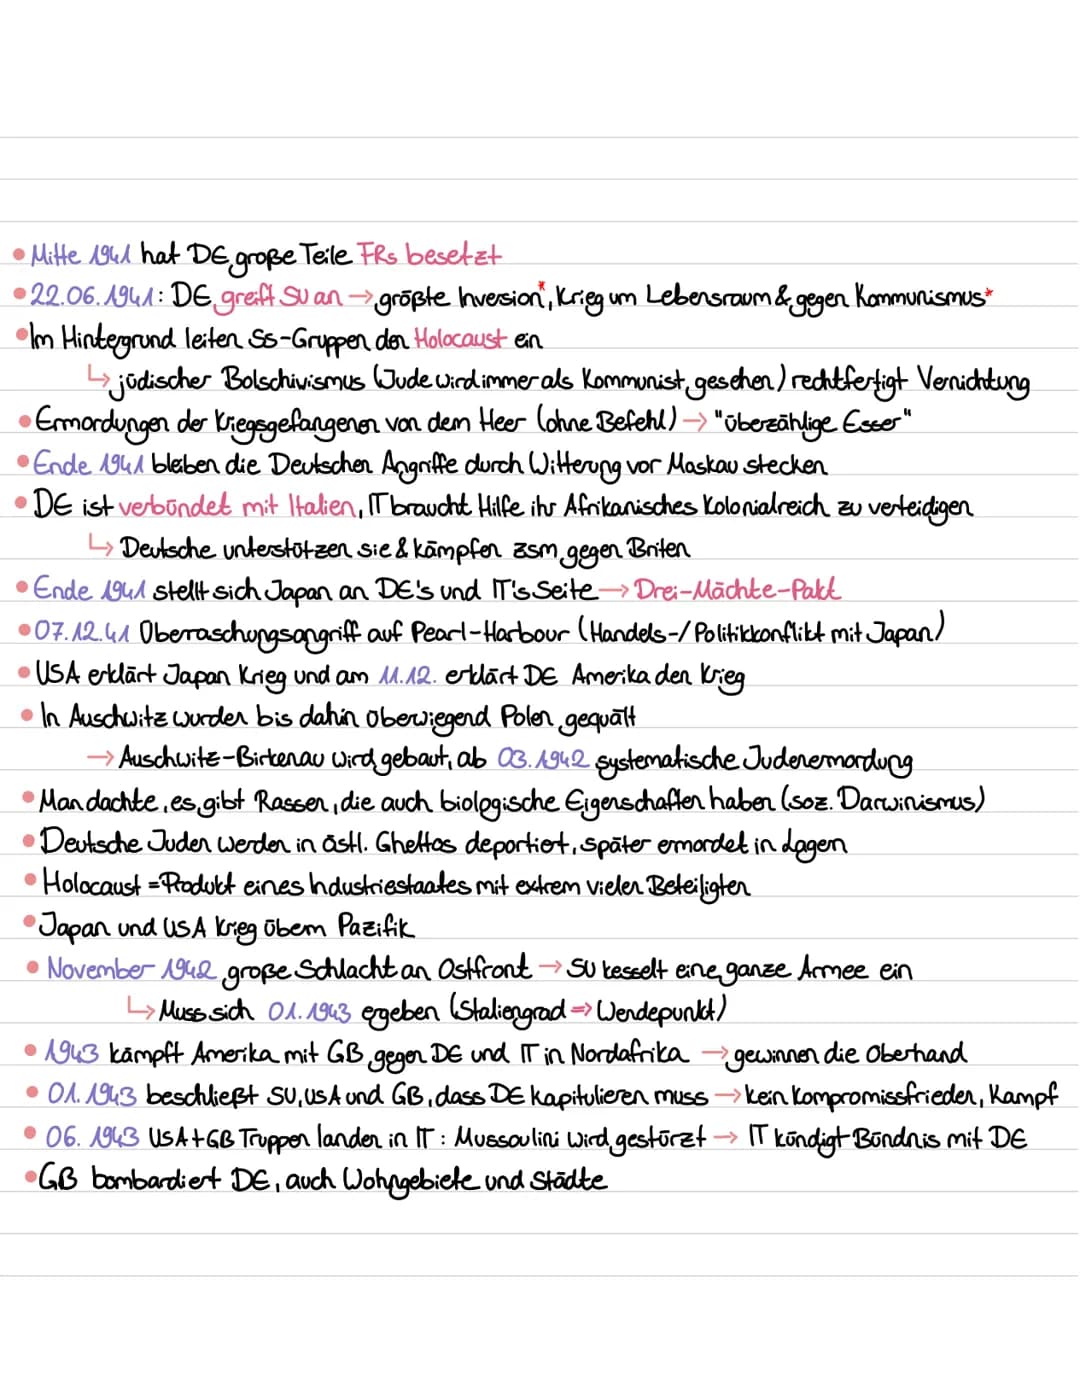 • Mitte 1941 hat DE große Teile FRs besetzt
• 22.06.1941: DE greift SU an → größte Inversion*, Krieg um Lebensraum & gegen Kommunismus*
• Im Hintergrund leiten SS-Gruppen den Holocaust ein
↳ jüdischer Bolschivismus (Jude wird immer als Kommunist gesehen) rechtfertigt Vernichtung
• Ermordungen der Kriegsgefangenen von dem Heer (ohne Befehl) → "überzählige Esser"
• Ende 1941 bleiben die Deutschen Angriffe durch Witterung vor Moskau stecken
• DE ist verbündet mit Italien, IT braucht Hilfe ihr Afrikanisches Kolonialreich zu verteidigen
↳ Deutsche unterstützen sie & kämpfen zsm gegen Briten
• Ende 1941 stellt sich Japan an DE's und IT's Seite → Drei-Mächte-Pakt
• 07.12.41 Überraschungsangriff auf Pearl-Harbour (Handels-/Politikkonflikt mit Japan)
• USA erklärt Japan Krieg und am 11.12. erklärt DE Amerika den Krieg
• In Auschwitz wurden bis dahin überwiegend Polen gequält
→ Auschwitz-Birkenau wird gebaut, ab 03.1942 systematische Judenermordung
• Man dachte, es gibt Rassen, die auch biologische Eigenschaften haben (soz. Darwinismus)
• Deutsche Juden werden in östl. Ghettos deportiert, später ermordet in Lagern
• Holocaust = Produkt eines Industriestaates mit extrem vielen Beteiligten
• Japan und USA Krieg überm Pazifik
• November 1942 große Schlacht an Ostfront → SU kesselt eine ganze Armee ein
↳ Muss sich 01.1943 ergeben (Staliengrad ⇒ Wendepunkt)
• 1943 kämpft Amerika mit GB gegen DE und IT in Nordafrika → gewinnen die Oberhand
• 01.1943 beschließt SU, USA und GB, dass DE kapitulieren muss → kein Kompromissfrieden, Kampf
• 06.1943 USA+GB Truppen landen in IT: Mussoulini wird gestürzt → IT kündigt Bündnis mit DE
• GB bombardiert DE, auch Wohngebiete und Städte